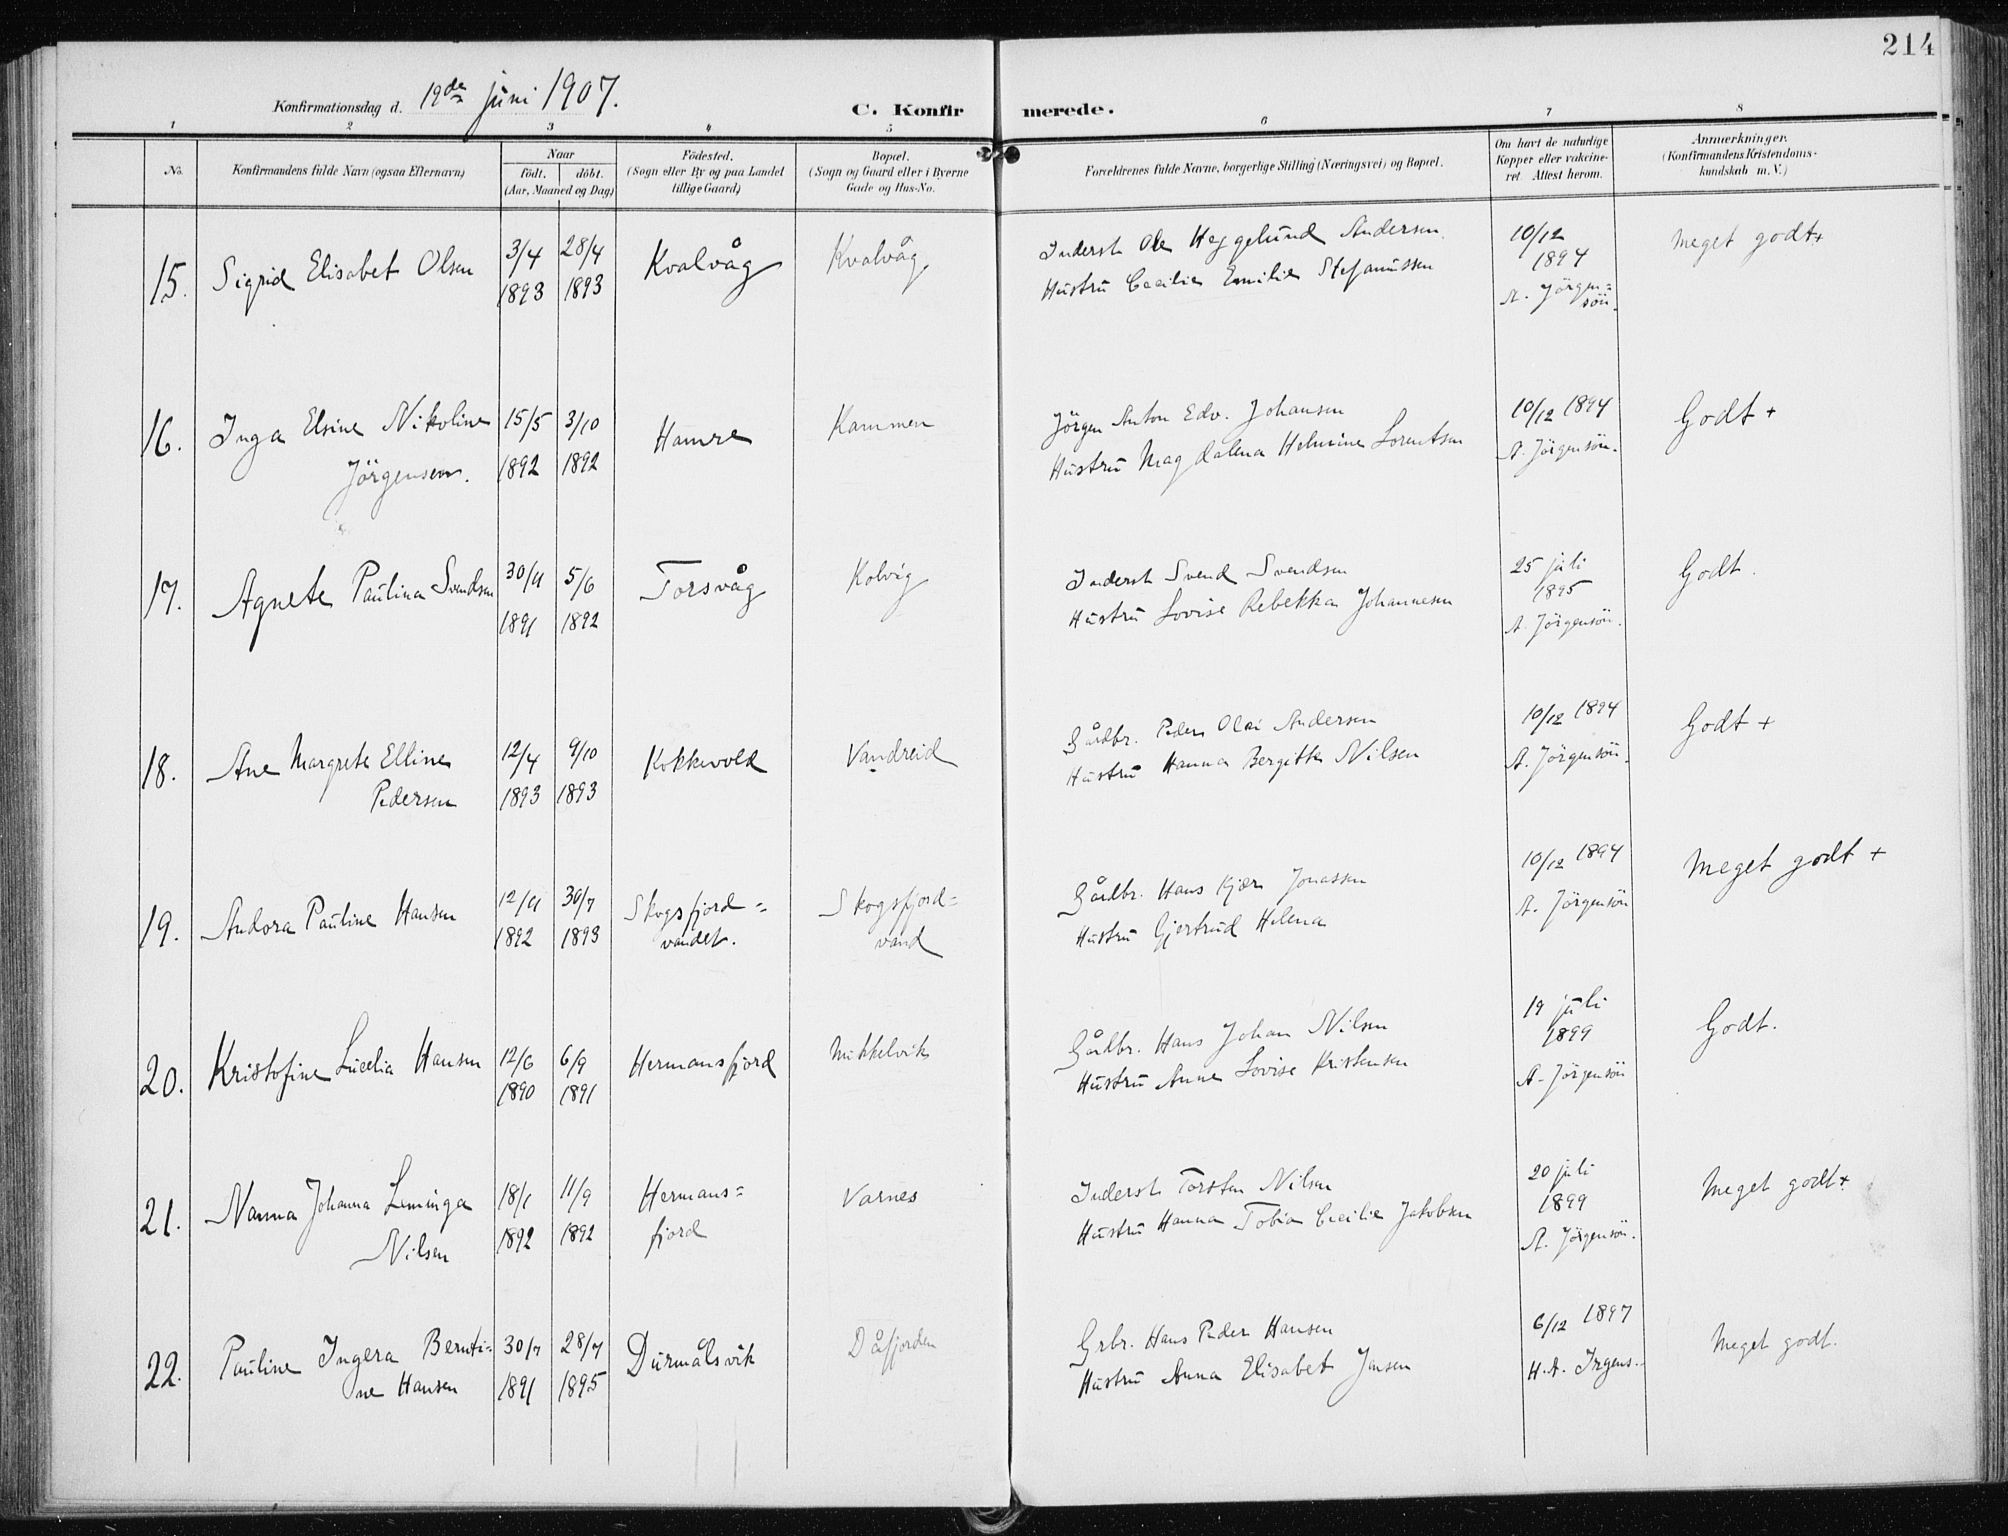 214
Konfirmationsdag d. 19de juni 1907.
C. Konfirmerede.
1 2 3 4 5 6 7 8
No.
Konfirmandens fulde Navn (ogsaa Efternavn)
Naar
födt. döbt.
(Aar, Maaned og Dag)
Födested.
(Sogn eller By og paa Landet
tillige Gaard)
Bopæl.
(Sogn og Gaard eller i Byerne
Gade og Hus-No.
Forældrenes fulde Navne, borgerlige Stilling (Næringsvei) og Bopæl.
Om havt de naturlige
Kopper eller vakcine-
ret. Attest herom.
Anmærkninger.
(Konfirmandens Kristendoms-
kundskab m. V.)
15. Sigrid Elisabet Olsen
3/4 28/4
1893 1893
Kvalvåg
Kvalvåg
Inderst Ole Heggelund Andersen
Hustru Cecilie Emilie Stefanussen
10/12
1894
A. Jörgen=
sön.
Meget godt+
16. Inga Elsine Nikoline
Jörgensen.
15/5 3/10
1892 1892
Hamre
Kammen
Jörgen Anton Edv. Johansen
Hustru Magdalena Helmine Lorentsen
10/12 1894
A. Jörgensön.
Godt +
17. Agnete Paulina Svendsen
30/11 5/6
1891 1892
Torsvåg
Kolvig
Inderst Svend Svendsen
Hustru Lovise Rebekka Johannesen
25 juli
1895
A. Jörgensön.
Godt.
18. Ane Margrete Elline
Pedersen
12/4 9/10
1893 1893
Kokkevold
Vandreid
Gårdbr. Peder Olai Andersen
Hustru Hanna Bergitte Nilsen
10/12 1894
A. Jörgensön.
Godt +
19. Andora Pauline Hansen
12/11 30/7
1892 1893
Skogsfjord=
vandet.
Skogsfjord=
vand
Gårdbr. Hans Kjær Jonassen
Hustru Gjertrud Helena
10/12 1894
A. Jörgensön
Meget godt +
20. Kristofine Lucelia Hansen
12/6 6/9
1890 1891
Hermansfjord
Mikkelvik
Gårdbr. Hans Johan Nilsen
Hustru Anne Lovise Kristensen
19 juli
1899
A. Jörgensön
Godt.
21. Nanna Johanna Leminga
Nilsen
18/1 11/9
1892 1892
Hermans=
fjord
Varnes
Inderst Torsten Nilsen
Hustru Hanna Tobia Cecilie Jakobsen
20 juli
1899
A. Jörgensön.
Meget godt+
22. Pauline Ingera Bernti=
ne Hansen
30/7 28/7
1891 1895
Durmålsvik
Dåfjorden
Grbr. Hans Peder Hansen
Hustru Anna Elisabet Jensen
6/12 1897
H. A. Irgens.
Meget godt.